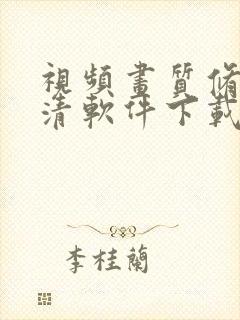 視頻畫質修
清軟件下載
李桂蘭